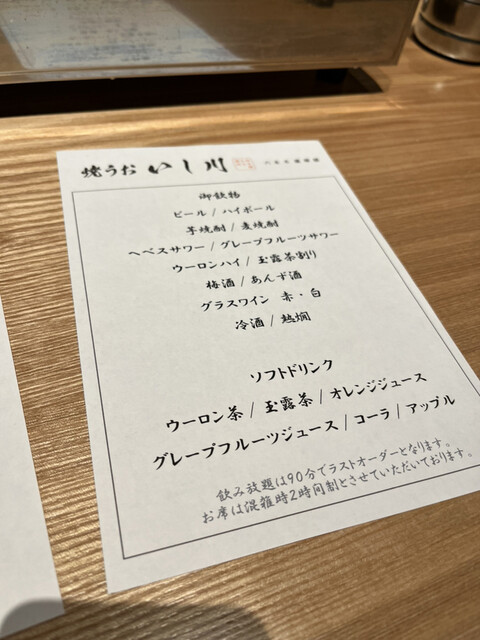 焼うお いし川
御飲物
ビール / ハイボール
芋焼酎 / 麦焼酎
ヘベスサワー / グレープフルーツサワー
ウーロンハイ / 玉露茶割り
梅酒 / あんず酒
グラスワイン 赤・白
冷酒 / 熱燗
ソフトドリンク
ウーロン茶 / 玉露茶 / オレンジジュース
グレープフルーツジュース / コーラ / アップル
飲み放題は90分でラストオーダーとなります。
お席は混雑時2時間制とさせていただいております。